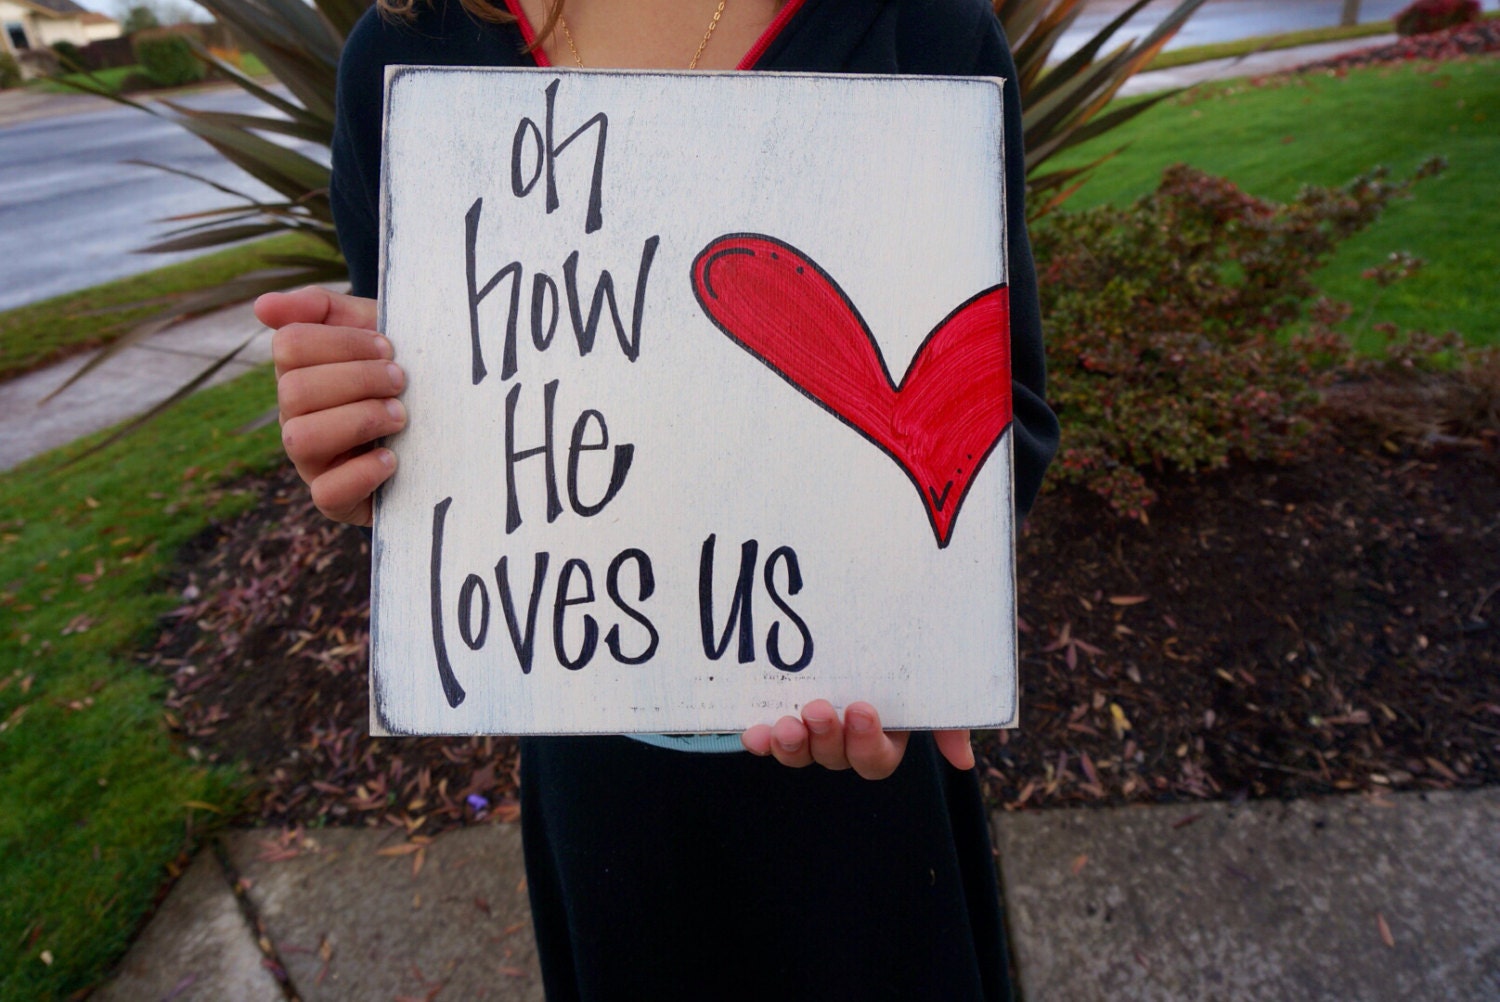 oh
how
He
loves us